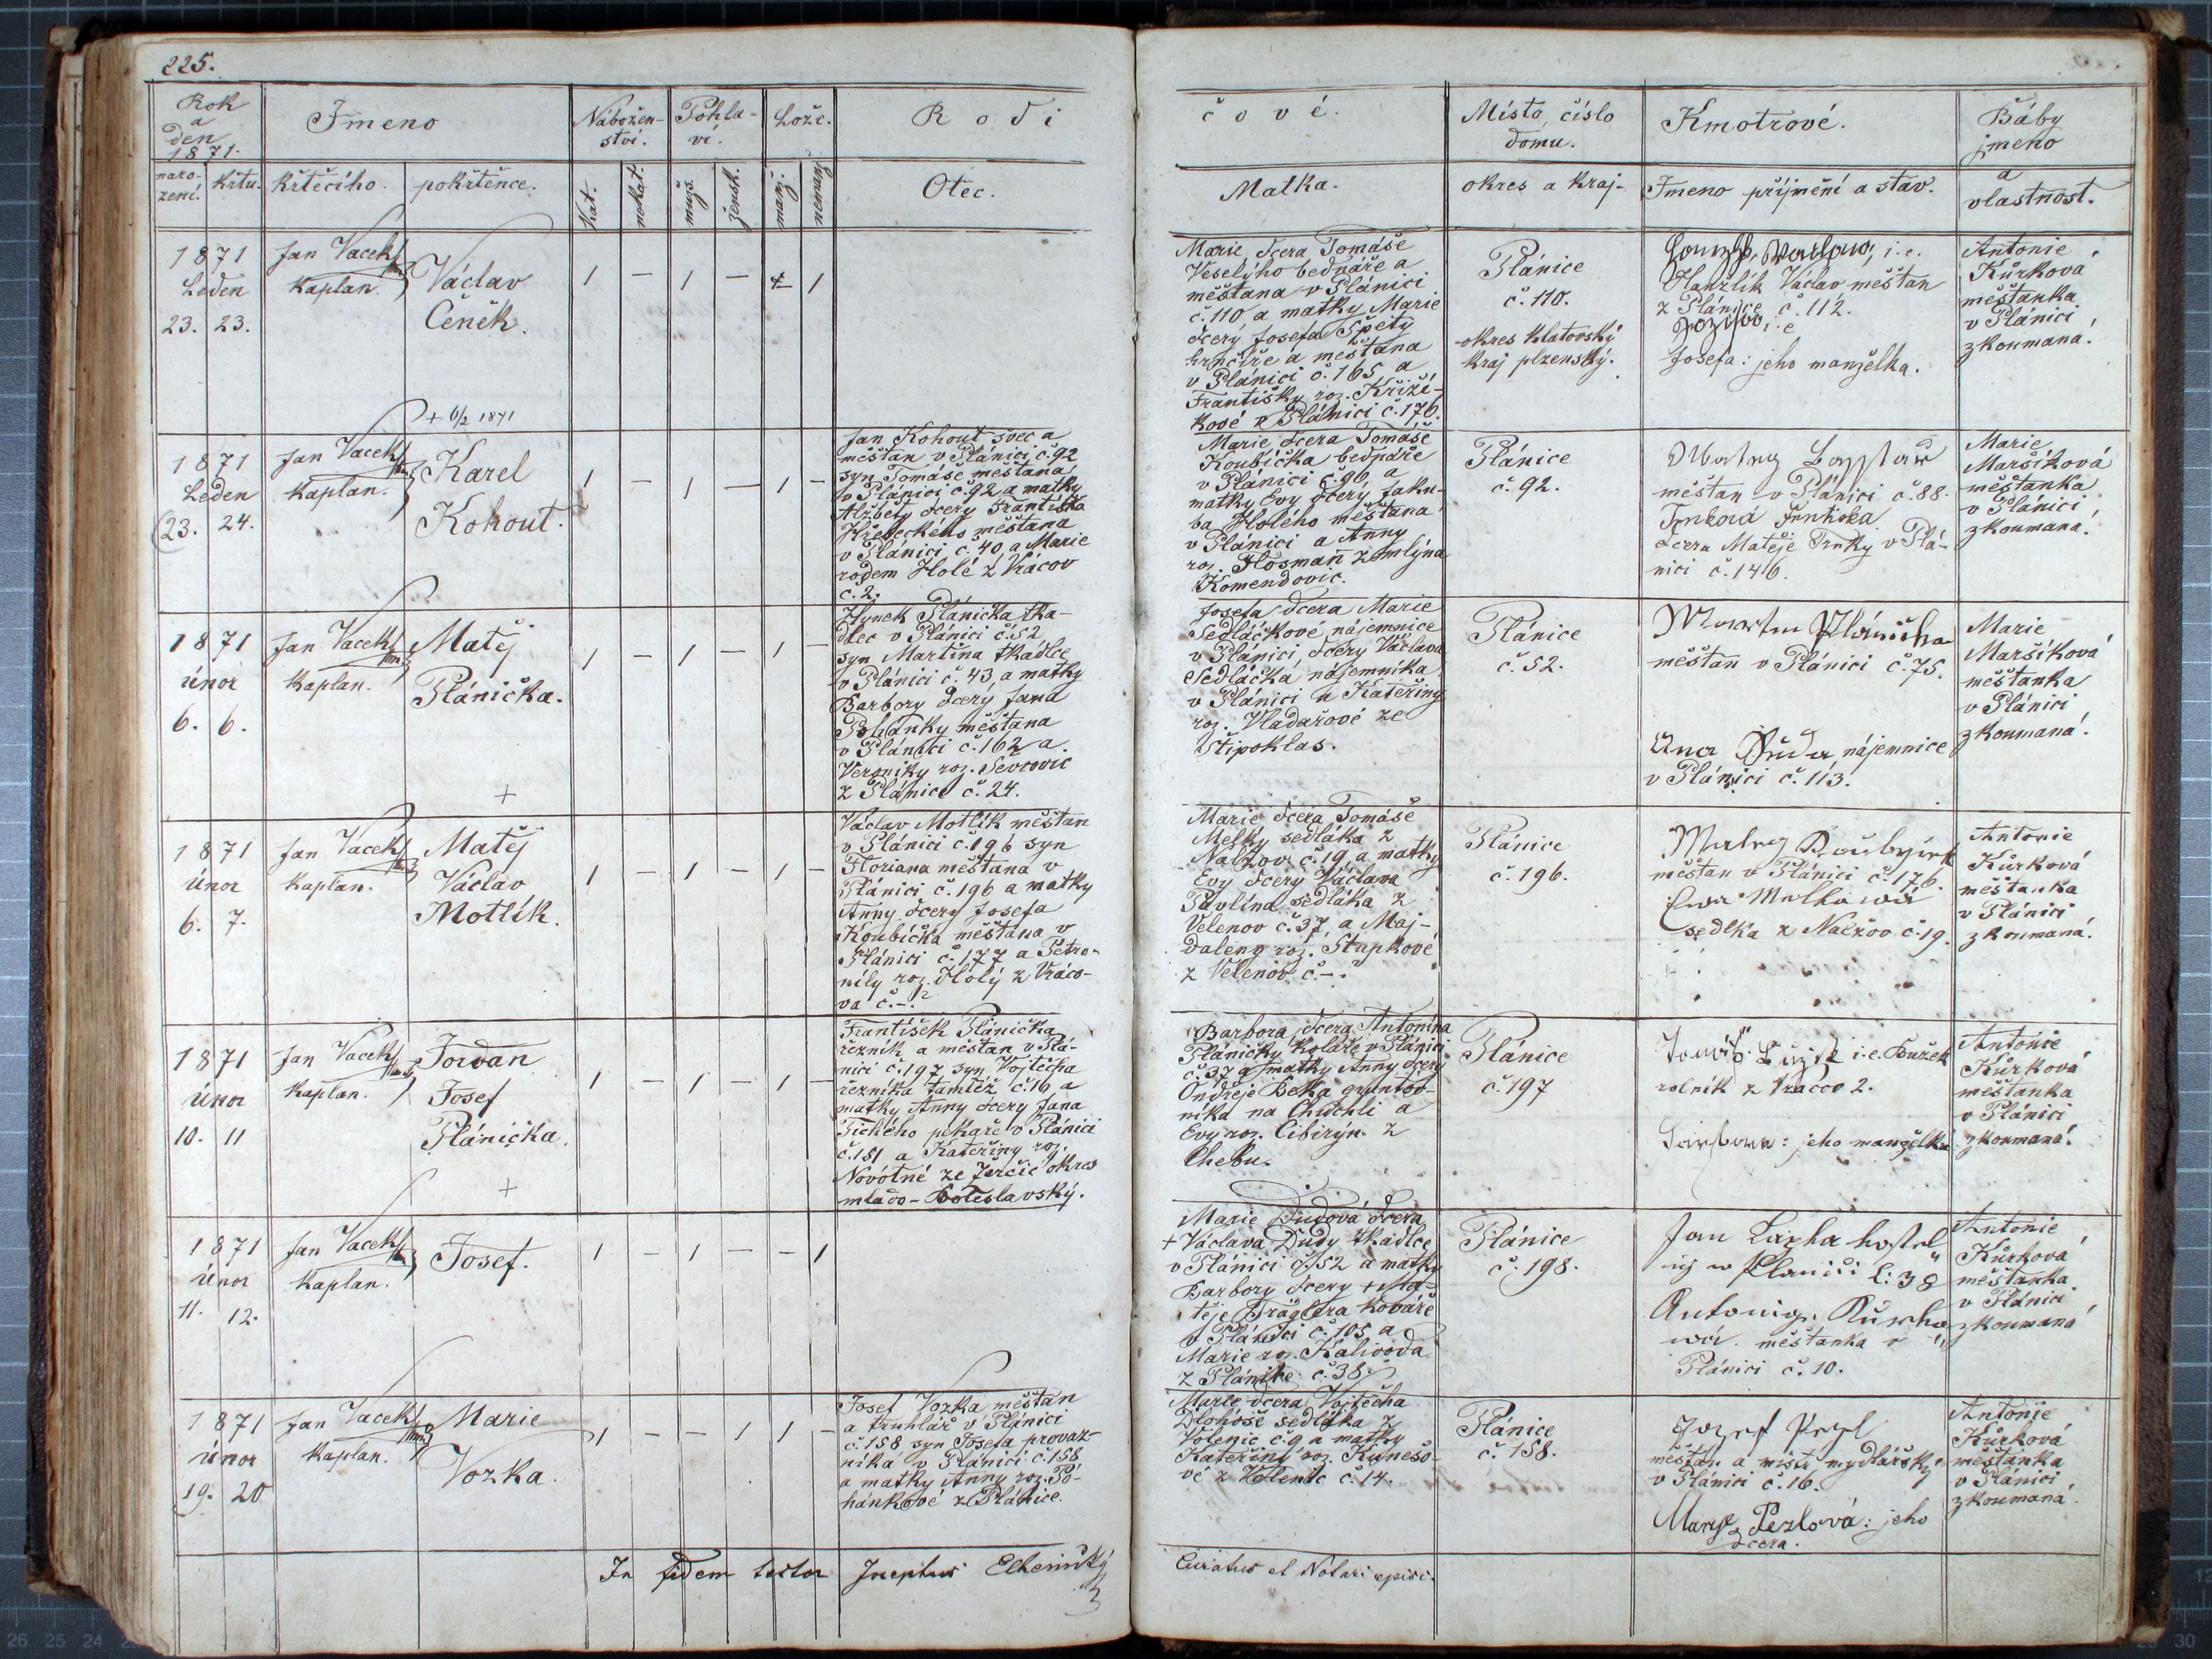 225.
Rok
a
den
1871.
Jmeno
Nábožen-
ství.
Pohla-
ví.
Lože.
Rodi
naro-
zení.
křtu.
křtěcího.
pokřtěnce.
kat.
nekat.
mužs.
žensk.
manž.
neman.
Otec.
čové.
Místo, číslo
domu.
Kmotrové.
Báby
jmeno
a
vlastnost.
Matka.
okres a kraj-
Jmeno příjmění a stav.
1871
Leden
23. 23.
Jan Vacek
kaplan.
Václav
Čeněk.
1 — 1 — 1
+ 6/2 1871
Marie, dcera Tomáše
Veselýho bednáře a
měšťana v Plánici
č. 110 a matky Marie
dcery Josefa Špety
hrnčíře a měšťana
v Plánici č. 165 a
Františky roz. Křiže-
kové z Plánici č. 176.
Plánice
č. 110.
okres klatovský
kraj plzenský.
i. e.
Hanžlík Václav měšťan
z Plánice č. 112.
i. e
Josefa: jeho manželka.
Antonie
Kůrková
měšťanka
v Plánici
zkoumaná.
1871
Leden
23. 24.
Jan Vacek
kaplan.
Karel
Kohout.
1 — 1 — 1 —
Jan Kohout švec a
měšťan v Plánici č. 92
syn Tomáše měšťana
v Plánici č. 92 a matky
Alžbety dcery Františka
měšťana
v Plánici č. 40 a Marie
rodem Holé z Vracov
č. 2.
Marie dcera Tomáše
Koubíčka bednáře
v Plánici č. 96, a
matky Evy dcery Jaku-
ba Holého měšťana
v Plánici a Anny
roz. Hosman z mlýna
Komendovic.
Plánice
č. 92.
měšťan v Plánici č. 88.
Trnková
dcera Matěje Trnky v Plá-
nici č. 146.
Marie
Maršíková
měšťanka
v Plánici
zkoumaná.
1871
únor
6. 6.
Jan Vacek
kaplan.
Matěj
Plánička.
+
1 — 1 — 1 —
Hynek Plánička tka-
dlec v Plánici č. 52
syn Martina tkadlce
v Plánici č. 43 a matky
Barbory dcery Jana
Pohanky měšťana
v Plánici č. 162 a
Veroniky roz. Sevcovic
z Plánice č. 24.
Josefa dcera Marie
Sedláčkové nájemnice
v Plánici, dcery Václava
Sedláčka nájemníka
v Plánici a Kateřiny
roz. Vladařové ze
Štipoklas.
Plánice
č. 52.
Martin Plánička
měšťan v Plánici č. 75.
nájemnice
v Plánici č. 113.
Marie
Maršíková
měšťanka
v Plánici
zkoumaná.
1871
únor
6. 7.
Jan Vacek
kaplan.
Matěj
Václav
Motlík.
1 — 1 — 1 —
Václav Motlík měšťan
v Plánici č. 196 syn
Floriana měšťana v
Plánici č. 196 a matky
Anny dcery Josefa
Koubíčka měšťana v
Plánici č. 177 a Petro-
nily roz. Holý z Vráco-
va č. –.
Marie dcera Tomáše
Melky sedláka z
Nalžov č. 19, a matky
Evy dcery Václava
Pavlína sedláka z
Velenov č. 37, a Maj-
daleny roz. Stupkové
z Velenov č. –.
Plánice
č. 196.
měšťan v Plánici č. 176.
Eva Melkowá
sedlka z Nalžov č. 19.
Antonie
Kůrková
měšťanka
v Plánici
zkoumaná.
1871
únor
10. 11
Jan Vacek
kaplan.
Jordan
Josef
Plánička.
+
1 — 1 — 1 —
František Plánička
řezník a měšťan v Plá-
nici č. 197 syn Vojtěcha
řezníka tamtéž č. 16 a
matky Anny dcery Jana
Tichého pekaře v Plánici
č. 181 a Kateřiny roz.
Novotné ze Jerčic okres
mlado-Boleslavský.
Barbora, dcera Antonína
Pláničky koláře v Plánici
č. 37 a matky Anny dcery
Ondřeje Beka gruntov-
níka na Chuchli a
Evy roz. Cibirýn z
Chebu.
Plánice
č. 197
i. e. Bužek
rolník z Vracov 2.
: jeho manželka
Antonie
Kůrková
měšťanka
v Plánici
zkoumaná.
1871
únor
11. 12.
Jan Vacek
kaplan.
Josef.
1 — 1 — — 1
Marie Dudová dcera
+ Václava Dudy tkadlce
v Plánici č. 152 a matky
Barbory dcery + Ma-
těje Träglera kováře
v Plánici č. 105 a
Marie roz. Kalivoda
z Plánice č. 38.
Plánice
č. 198.
Jan
w Planici č: 38
měšťanka v
Plánici č. 10.
Antonie
Kůrková
měšťanka
v Plánici
zkoumaná
1871
únor
19. 20
Jan Vacek
kaplan.
Marie
Vozka.
1 — — 1 1 —
Josef Vozka měšťan
a truhlář v Plánici
č. 158 syn Josefa provaz-
níka v Plánici č. 158
a matky Anny roz. Po-
hánkové z Plánice.
Marie dcera Vojtěcha
sedláka z
Volenic č. 9 a matky
Kateřiny roz. Kunešo-
vé z Volenic č. 14.
Plánice
č. 158.
Jozef Pezl
měšťan a mistr mydlářský
v Plánici č. 16.
Marye Pezlová: jeho
dcera.
Antonie
Kůrková
měšťanka
v Plánici
zkoumaná.
In fidem testor Josephus
Curatus et Notari episc.